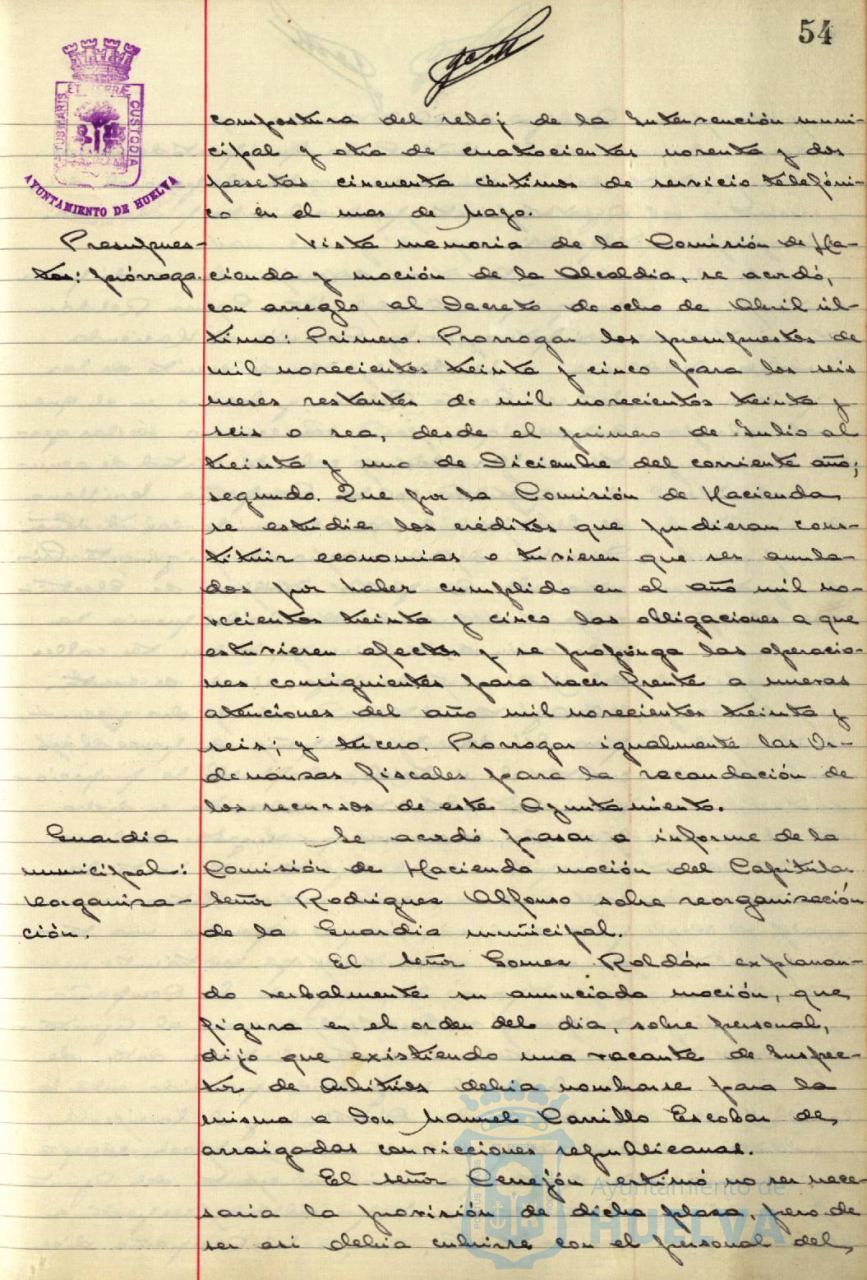 54
PORTUS MARIS ET TERRE CUSTODIA
AYUNTAMIENTO DE HUELVA
compostura del reloj de la Intervención muni-
cipal y otra de cuatrocientas noventa y dos
pesetas cincuenta céntimos de servicio telefóni-
co en el mes de Mayo.
Presupues-
tos: prórroga.
Vista memoria de la Comisión de Ha-
cienda y moción de la Alcaldia, se acordó,
con arreglo al Decreto de ocho de Abril úl-
timo: Primero. Prorrogar los presupuestos de
mil novecientos treinta y cinco para los seis
meses restantes de mil novecientos treinta y
seis o sea, desde el primero de Julio al
treinta y uno de Diciembre del corriente año;
segundo. Que por la Comisión de Hacienda
se estudie los créditos que pudieran cons-
tituir economias o tuvieren que ser anula-
dos por haber cumplido en el año mil no-
vecientos treinta y cinco las obligaciones a que
estuvieren afectos y se proponga las operacio-
nes consiguientes para hacer frente a nuevas
atenciones del año mil novecientos treinta y
seis; y tercero. Prorrogar igualmente las Or-
denanzas fiscales para la recaudación de
los recursos de este Ayuntamiento.
Guardia
municipal:
reorganiza-
ción.
Se acordó pasar a informe de la
Comisión de Hacienda moción del Capitular
Señor Rodriguez Alfonso sobre reorganización
de la Guardia municipal.
El Señor Gomez Roldán explanan-
do verbalmente su anunciada moción, que
figura en el orden del dia, sobre personal,
dijo que existiendo una vacante de Inspec-
tor de Arbitrios debia nombrarse para la
misma a Don Manuel Carrillo Escobar de
arraigadas convicciones republicanas.
El Señor Cerrejón estimó no ser nece-
saria la provisión de dicha plaza, pero de
ser asi debia cubrirse con el personal del
Ayuntamiento de
HUELVA